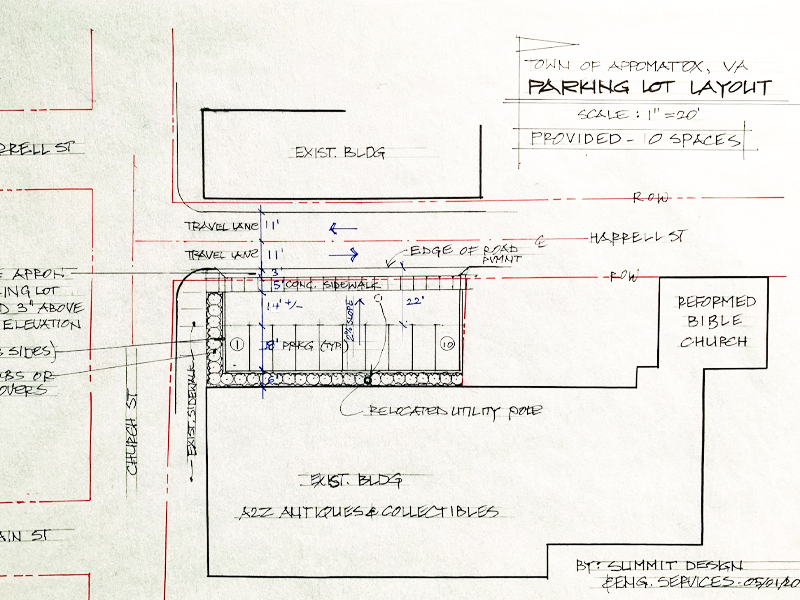 TOWN OF APPOMATTOX, VA
PARKING LOT LAYOUT
SCALE: 1" = 20'
PROVIDED - 10 SPACES
EXIST. BLDG
ROW
TRAVEL LANE 11'
HARRELL ST
TRAVEL LANE 11'
EDGE OF ROAD
PVMNT
APRON
3'
5' CONC. SIDEWALK
ROW
14' +/-
2% SLOPE
22'
3" ABOVE
ELEVATION
REFORMED
BIBLE
CHURCH
1
18' PRKG (TYP.)
10
SIDES)
OR
6'
RELOCATED UTILITY POLE
EXIST. SIDEWALK
CHURCH ST
EXIST. BLDG
A2Z ANTIQUES & COLLECTIBLES
ST
BY: SUMMIT DESIGN
& ENG. SERVICES - 05/01/20